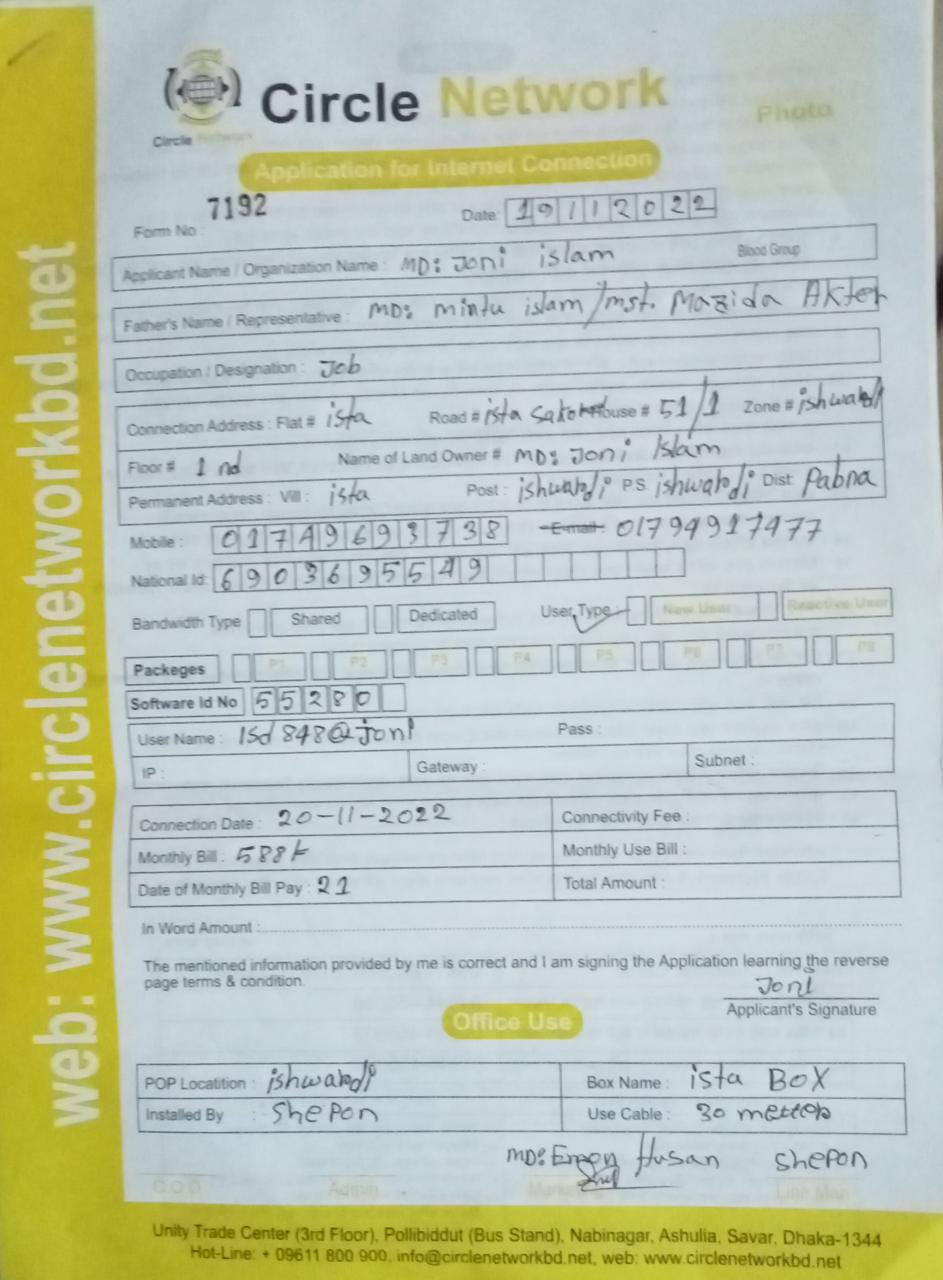 Circle Network
Photo
Circle Network
Application for Internet Connection
Form No : 7192 Date: 19112022
Applicant Name / Organization Name : MD: Joni islam Blood Group
Father's Name / Representative : MD: mintu islam/mst. Mazida Akter
Occupation / Designation : Job
Connection Address : Flat # ista Road # ista House # 51/1 Zone # ishwardi
Floor # 1 nd Name of Land Owner # MD: Joni Islam
Permanent Address : Vill : ista Post : ishwardi P.S. ishwardi Dist: Pabna
Mobile : 01749693738 E-mail: 01794917477
National Id: 6903695549
Bandwidth Type Shared Dedicated User Type: New User Reactive User
Packeges P1 P2 P3 P4 P5 P6 P7 P8
Software Id No 55280
User Name : ISd 848@joni Pass :
IP : Gateway : Subnet :
Connection Date : 20-11-2022 Connectivity Fee :
Monthly Bill : 588 Monthly Use Bill :
Date of Monthly Bill Pay : 21 Total Amount :
In Word Amount :
The mentioned information provided by me is correct and I am signing the Application learning the reverse
page terms & condition.
Joni
Applicant's Signature
Office Use
POP Locatition : ishwardi Box Name : ista BOX
Installed By : Shepon Use Cable : 30 metter
MD: Husan Shepon
Admin Line Man
Unity Trade Center (3rd Floor), Pollibiddut (Bus Stand), Nabinagar, Ashulia, Savar, Dhaka-1344
Hot-Line: + 09611 800 900, info@circlenetworkbd.net, web: www.circlenetworkbd.net
web: www.circlenetworkbd.net